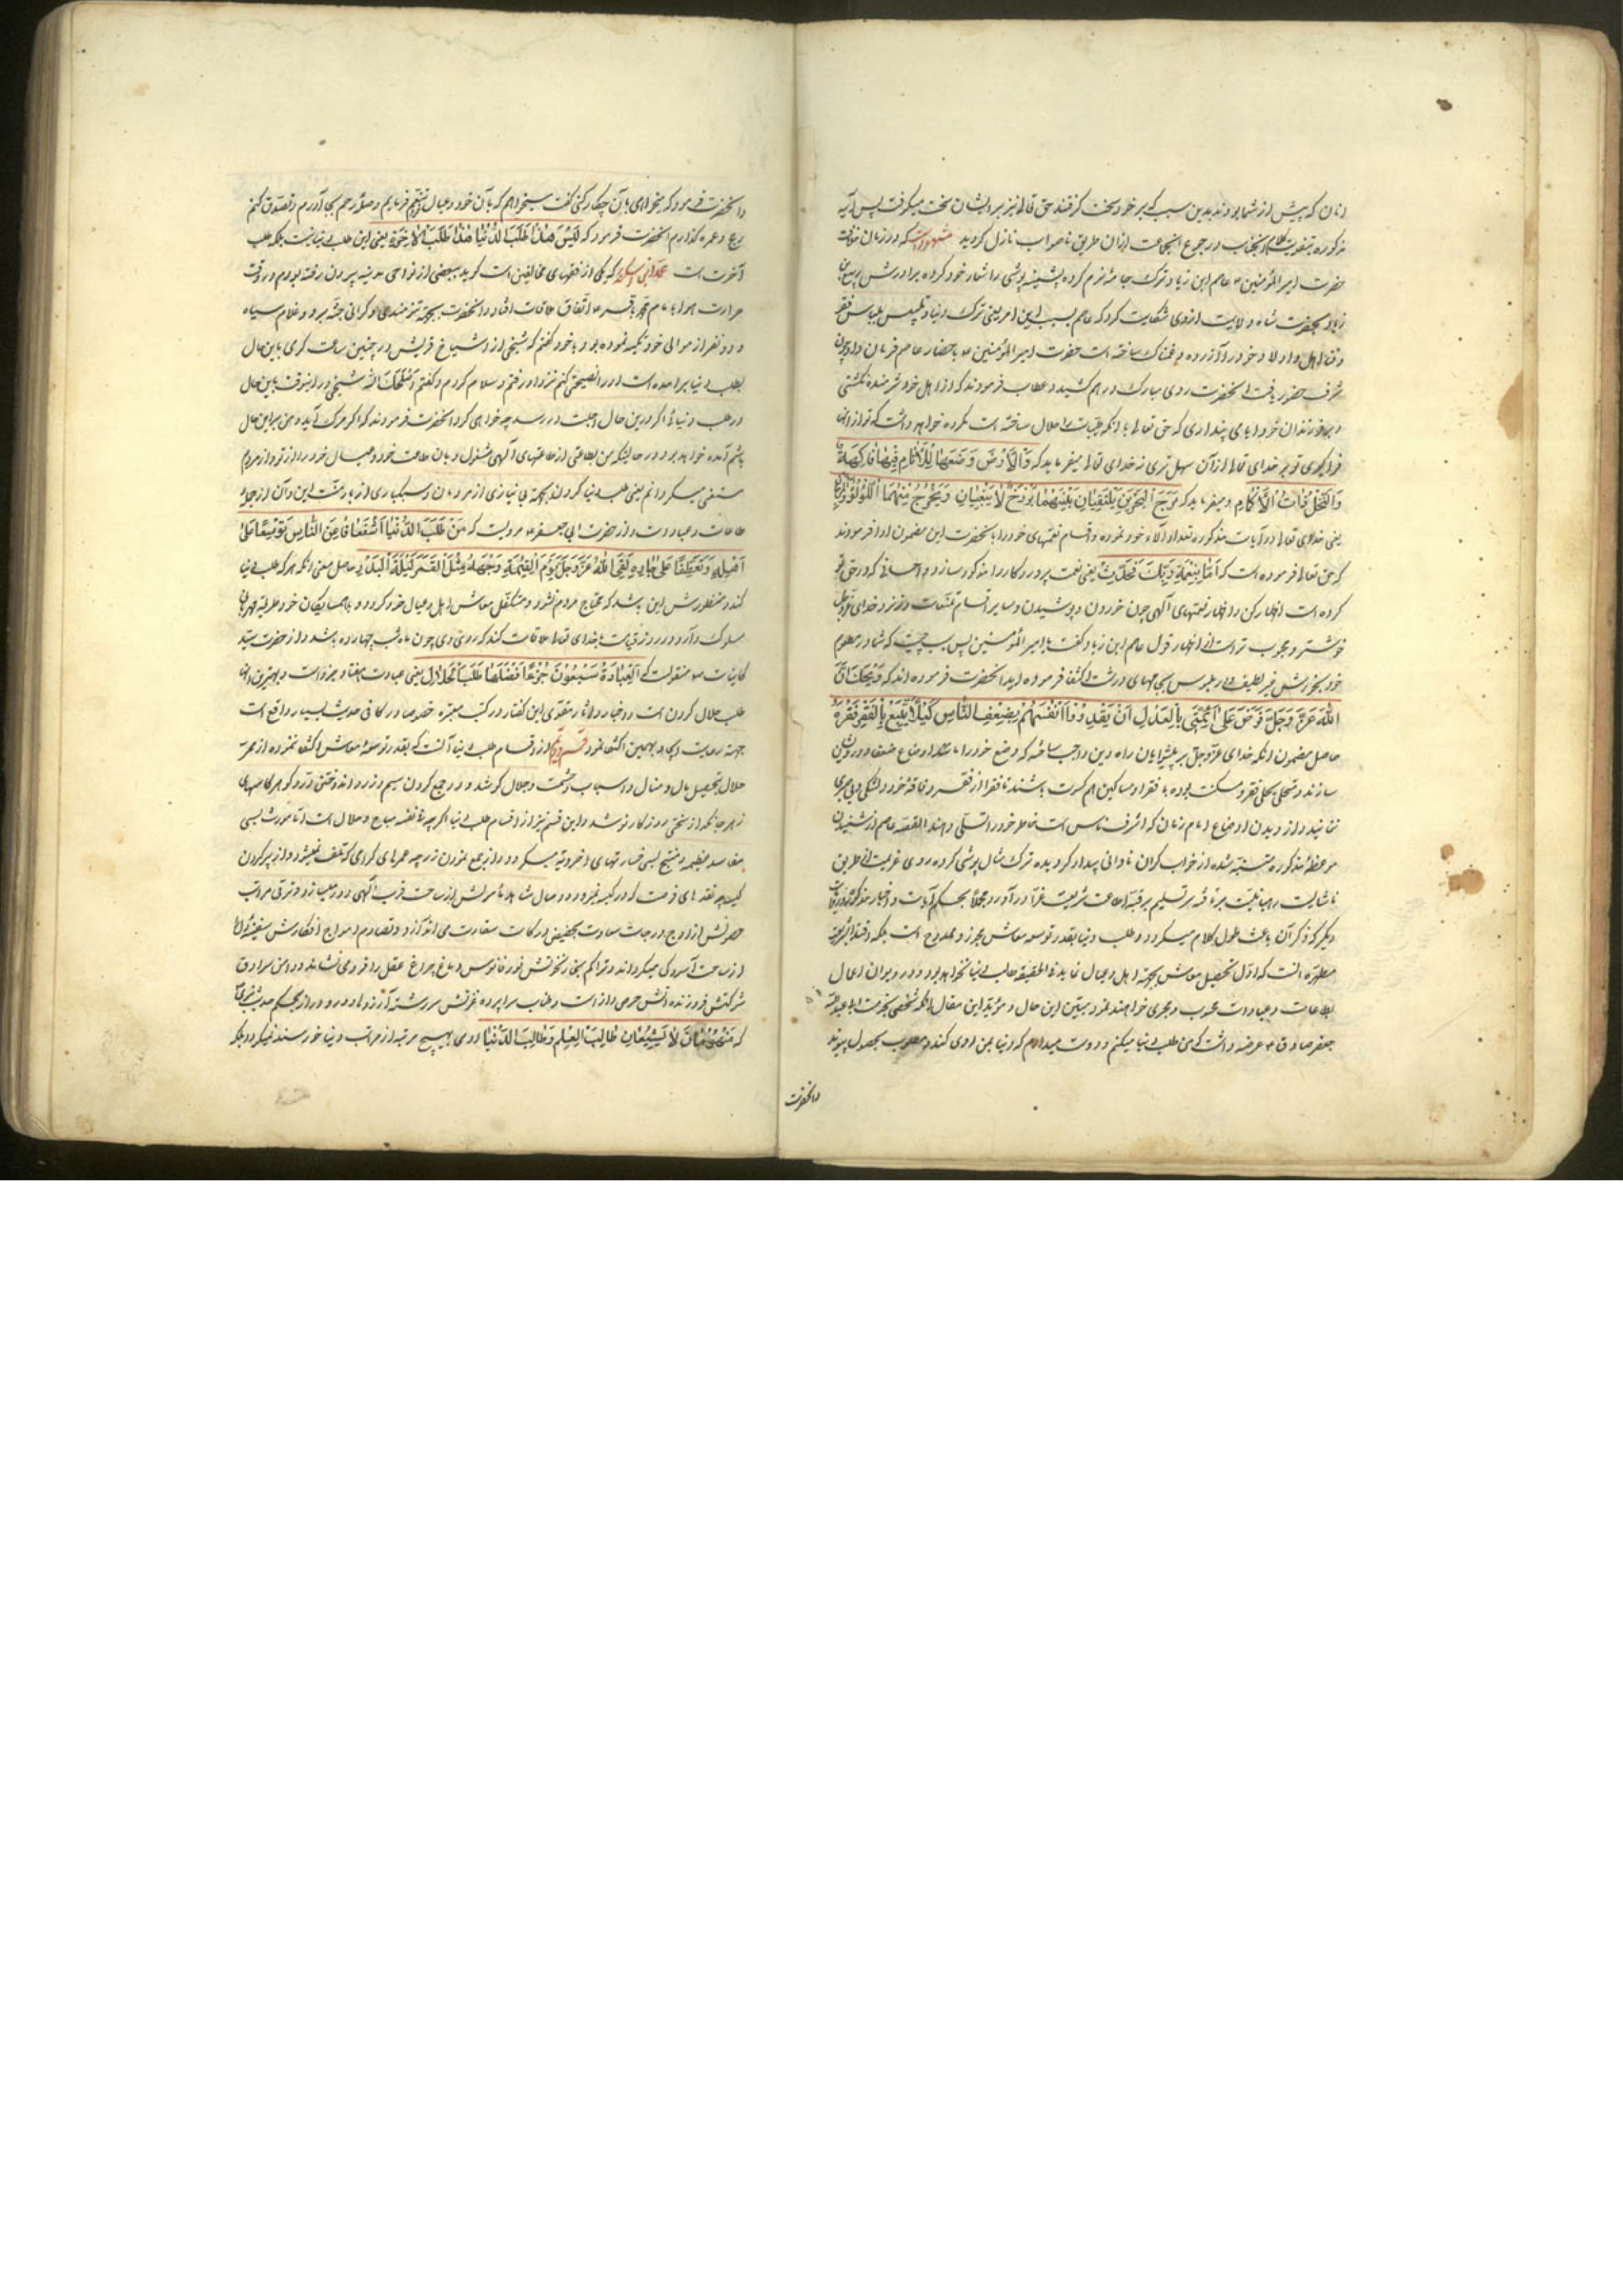 انان که پیش از شما بودند بدین سبب که بر خود سخت گرفتند حق تعالی نیز بر ایشان سخت میگرفت پس آیه
مذکوره تقویت کلام آنجناب و رجوع انجماعت ازان طریق ناصواب نازل گردید مشهور است که در زمان خلافت
حضرت امیر المؤمنین ع عاصم ابن زیاد ترک جامهٔ نرم کرده پشمینه پوشی را شعار خود کرده برادرش ربیع بن
زیاد بحضرت شاه ولایت از وی شکایت کرد که عاصم بسبب این امر یعنی ترک دنیا و تلبس بلباس فقر
و فنا اهل و اولاد خود را آزرده و غمناک ساخته است حضرت امیر المؤمنین ع باحضار عاصم فرمان داد چون
شرف حضور یافت آنحضرت روی مبارک درهم کشید و عطاب فرمودند که از اهل خود شرمنده نگشتی
و بر فرزندان خود آیا می پنداری که حق تعالی با آنکه طیبات را حلال ساخته است مکروه خواهد داشت که تو ازان
فرا گیری تو بر خدای تعالی از آن سهل تری نه خدای تعالی میفرماید که وَالْاَرْضَ وَضَعَهَا لِلْاَنَامِ فِيهَا فَاكِهَةٌ
وَالنَّخْلُ ذَاتُ الْاَكْمَامِ و میفرماید که مَرَجَ الْبَحْرَيْنِ يَلْتَقِيَانِ بَيْنَهُمَا بَرْزَخٌ لَا يَبْغِيَانِ وَيَخْرُجُ مِنْهُمَا اللُّؤْلُؤُ وَالْمَرْجَانُ
یعنی خدای تعالی در آیات مذکوره تعداد آلاء خود نموده و اقسام نعمتهای خود را آنحضرت این مضمون ادا فرمودند
که حق تعالی فرموده است که اَمَّا بِنِعْمَةِ رَبِّكَ فَحَدِّثْ یعنی نعمت پروردگار را مذکور ساز و احسانی که در حق تو
کرده است اظهار کن و اظهار نعمتهای آلهی چون خوردن و پوشیدن و سایر اقسام تمتعات نزد خدای عزوجل
خوشتر و محبوب تر است از اظهار قول عاصم ابن زیاد گفت یا امیر المؤمنین پس سبب چیست که شما در مطعوم
خود بخورش غیر لطیف و در ملبوس بجامهای درشت اکتفا فرموده اید آنحضرت فرمودند که وَيْحَكَ اِنَّ
اللهَ عَزَّ وَجَلَّ فَرَضَ عَلَى اَئِمَّةِ الْعَدْلِ اَنْ يُقَدِّرُوا اَنْفُسَهُمْ بِضَعَفَةِ النَّاسِ كَيْلَا يَتَبَيَّغَ بِالْفَقِيرِ فَقْرُهُ
حاصل مضمون آنکه خدای عزوجل بر پیشوایان راه دین واجب ساخته که وضع خود را مانند اوضاع ضعفا و درویشان
سازند و متحلی بحلی فقر و مسکنت بوده با فقرا و مساکین هم کسوت باشند تا فقرا از فقر و فاقه خود دلتنگی و بی صبری
ننمایند و از دیدن اوضاع امام زمان که اشرف ناس است خاطر خود را تسلی دهند القصه عاصم از شنیدن
موعظهٔ مذکوره متنبه شده از خواب گران نادانی بیدار گردیده ترک شال پوشی کرده روی عزیمت از طریق
ناشایست رهبانیت برتافته سر تسلیم بر قبهٔ اطاعت شریعت غرا در آورد مجملا بحکم آیات و اخبار مذکوره و روایات
دیگر که ذکر آن باعث طول کلام میگردد طلب دنیا بقدر توسعهٔ معاش مجوز و ممدوح است بلکه در شریعت
مطهره آنست که از آن تحصیل معاش بجهة اهل و عیال نماید فی الحقیقه طالب دنیا نخواهد بود و در دیوان اعمال
از طاعات و عبادات محسوب و مجری خواهند نمود مبین این حال و مؤید این مقال آنکه شخصی بخدمت ابی عبدالله
جعفر صادق ع عرضه داشت که من طلب دنیا میکنم و دوست میدارم که دنیا بمن روی کند و مطلوب بحصول پیوندد
وآنحضرت
وآنحضرت فرمود که میخواهی بآن چکار کنی گفت میخواهم که بآن خود و عیال تنعم فرمایم و صلهٔ رحم بجا آورم و تصدق کنم
و حج و عمره گذارم آنحضرت فرمود که لَيْسَ هٰذَا طَلَبَ الدُّنْيَا هٰذَا طَلَبُ الْاٰخِرَةِ یعنی این طلب دنیا نیست بلکه طلب
آخرت است محمد ابن منکدر که یکی از فقهای مخالفین است گوید ببعضی از نواحی مدینه بیرون رفته بودم در وقت
حرارت هوا با امام محمد باقر ع اتفاق ملاقات افتاد و آنحضرت بجهة تنومندی و گرانی جثه بر دو غلام سیاه
و دو نفر از موالی خود تکیه نموده بود با خود گفتم که شیخی از اشیاخ قریش در چنین ساعت گرمی باین حال
بطلب دنیا برآمده است او را نصیحتی کنم نزد او رفتم و سلام کردم و گفتم اَصْلَحَكَ اللهُ شیخی در اینوقت باین حال
در طلب دنیا اگر درین حال اجلت در رسد چه خواهی کرد آنحضرت فرمودند که اگر مرگ آید و من بر این حال
باشم آمده خواهد بود در حالتیکه من بطاعتی از طاعتهای آلهی مشغول و بآن طاعت خود و عیال خود را از تو و از مردم
مستغنی میگردانم یعنی طلب دنیا کردن بجهة بی نیازی از مردمان و سبکباری از بار منت این و آن از جملهٔ
طاعات و عبادات است و از حضرت ابی جعفر ع مرویست که مَنْ طَلَبَ الدُّنْيَا اسْتِعْفَافًا مِنَ النَّاسِ وَتَوْسِيعًا عَلٰى
اَهْلِهِ وَتَعَطُّفًا عَلٰى جَارِهِ لَقِيَ اللهَ عَزَّ وَجَلَّ يَوْمَ الْقِيٰمَةِ وَوَجْهُهُ مِثْلُ الْقَمَرِ لَيْلَةَ الْبَدْرِ حاصل معنی آنکه هر که طلب دنیا
کند و منظورش این باشد که محتاج مردم نشود و متکفل معاش اهل و عیال خود گردد و با همسایگان خود طریقهٔ مهربانی
مسلوک دارد در روز قیامت با خدای تعالی ملاقات کند که روی وی چون ماه شب چهارده باشد و از حضرت سید
کاینات ص منقولست که اَلْعِبَادَةُ سَبْعُونَ جُزْءًا اَفْضَلُهَا طَلَبُ الْحَلَالِ یعنی عبادت هفتاد جزو است و بهترین آن
طلب حلال کردن است و اخبار و آثار مقوی این گفتار در کتب معتبره خصوصا در کافی حدیث بسیار واقع است
جهة رعایت ایجاز بهمین اکتفا نمود قسم دویم از اقسام طلب دنیا آنست که بقدر توسعهٔ معاش اکتفا ننموده از ممر
حلال بتحصیل مال و منال و اسباب حشمت و جلال کوشد و در جمع کردن سیم و زر و اندوختن در و گوهر کاسهای
زهر جانگداز سختی روزگار نوشد و این قسم نیز از اقسام طلب دنیا اگر چه فی نفسه مباح و حلال است اما مورث بسی
مفاسد عظیمه و منتج بسی خسارتهای اخرویه میگردد از جمع نمودن زر چه عمرهای گرامی که تلف نمیشود و از پر کردن
کیسه نقدهای فرصت که در کیسه نمیرود وصال شاهد نامرادیش از ساحت قرب آلهی دور میسازد و ترقی مراتب
حرصش از اوج درجات سعادت بحضیض درکات شقاوت می اندازد و تصادم امواج افکارش سفینهٔ دل را
از ساحت آسودگی میگرداند و تراکم بخار نخوتش نور فانوس دماغ چراغ عقل را فرو می نشاند و دامن سرادق
شرکتش فروزنده آتش حرص و آز است و طناب سراپردهٔ عزتش سررشتهٔ آرزوهای دور و دراز بحکم حدیث شریف
که مَنْهُومَانِ لَا يَشْبَعَانِ طَالِبُ الْعِلْمِ وَطَالِبُ الدُّنْيَا آدمی بهیچ مرتبه از مراتب دنیا خورسند نمیگردد بلکه